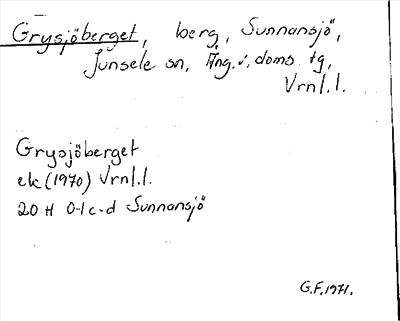 Grysjöberget, berg, Sunnansjö,
Junsele sn, Ång. v. doms. tg,
Vrnl.l.
Grysjöberget
ek (1970) Vrnl.l.
20 H 0-1 c-d Sunnansjö
G.F. 1971.